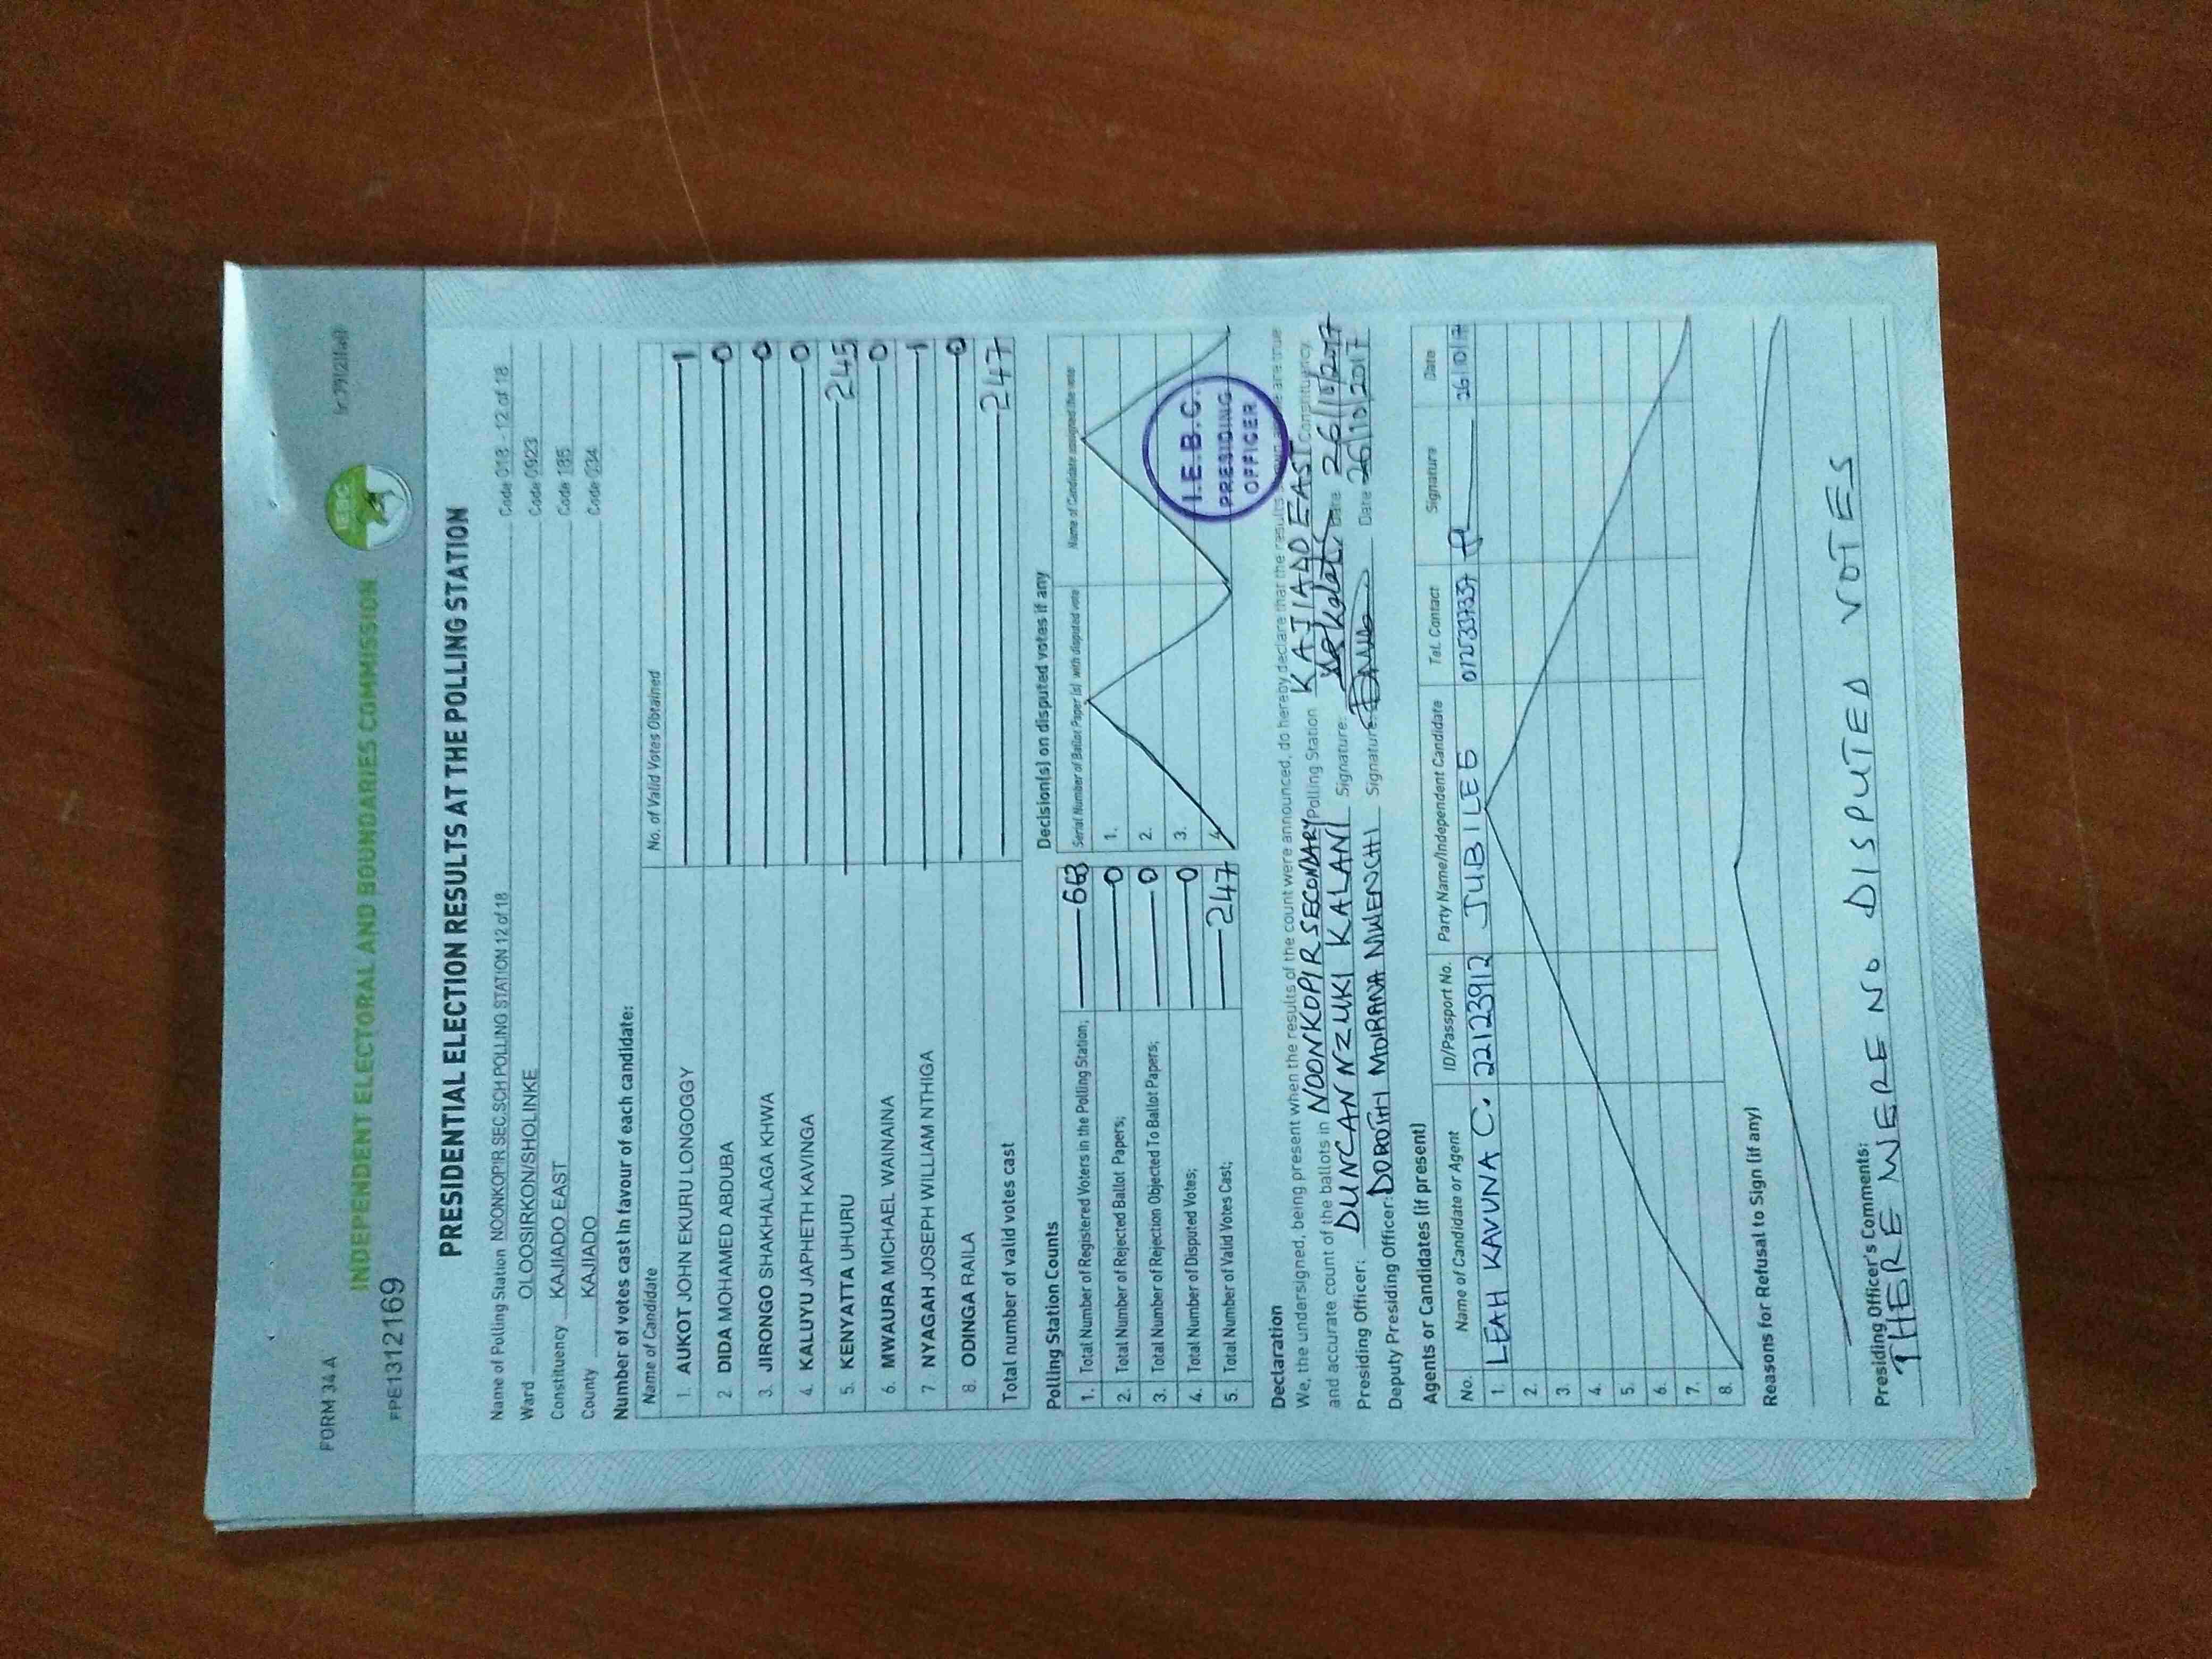 FORM 34 A
INDEPENDENT ELECTORAL AND BOUNDARIES COMMISSION
IEBC
PPE1312169
PRESIDENTIAL ELECTION RESULTS AT THE POLLING STATION
Name of Polling Station NOONKOPIR SEC.SCH POLLING STATION 12 of 18 Code 018 - 12 of 18
Ward OLOOSIRKON/SHOLINKE Code 0923
Constituency KAJIADO EAST Code 185
County KAJIADO Code 034
Number of votes cast in favour of each candidate:
Name of Candidate No. of Valid Votes Obtained
1. AUKOT JOHN EKURU LONGOGGY 1
2 DIDA MOHAMED ABDUBA 0
3. JIRONGO SHAKHALAGA KHWA 0
4. KALUYU JAPHETH KAVINGA 0
5. KENYATTA UHURU 245
6. MWAURA MICHAEL WAINAINA 0
7 NYAGAH JOSEPH WILLIAM NTHIGA 1
8. ODINGA RAILA 0
Total number of valid votes cast 247
Polling Station Counts Decision(s) on disputed votes if any
Serial Number of Ballot Paper (s) with disputed vote Name of Candidate assigned the vote
1. Total Number of Registered Voters in the Polling Station; 1.
2. Total Number of Rejected Ballot Papers; 0 2.
3. Total Number of Rejection Objected To Ballot Papers; 0 3.
4. Total Number of Disputed Votes; 0 4.
5. Total Number of Valid Votes Cast; 247
I.E.B.C.
PRESIDING
OFFICER
Declaration
We, the undersigned, being present when the results of the count were announced, do hereby declare that the results are true
and accurate count of the ballots in NOONKOPIR SECONDARY Polling Station KAJIADO EAST Constituency
Presiding Officer: DUNCAN NZUKI KALANI Signature. Date 26/10/2017
Deputy Presiding Officer: DOROTHI MOIRANA MWENCHI Signature. Date 26/10/2017
Agents or Candidates (if present)
No. Name of Candidate or Agent ID/Passport No. Party Name/Independent Candidate Tel. Contact Signature Date
1. LEAH KAVUNA C. 22123912 JUBILEE 26/10/17
2.
3.
4.
5.
6.
7.
8.
Reasons for Refusal to Sign (if any)
Presiding Officer's Comments:
THERE WERE NO DISPUTED VOTES